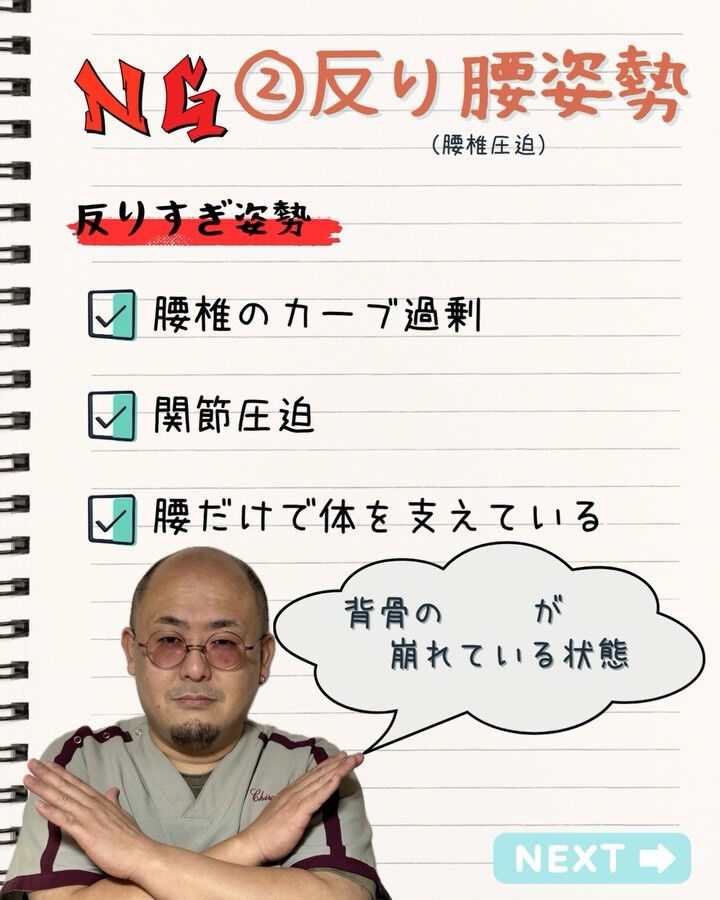 NG ②反り腰姿勢
(腰椎圧迫)
反りすぎ姿勢
腰椎のカーブ過剰
関節圧迫
腰だけで体を支えている
背骨の が
崩れている状態
NEXT